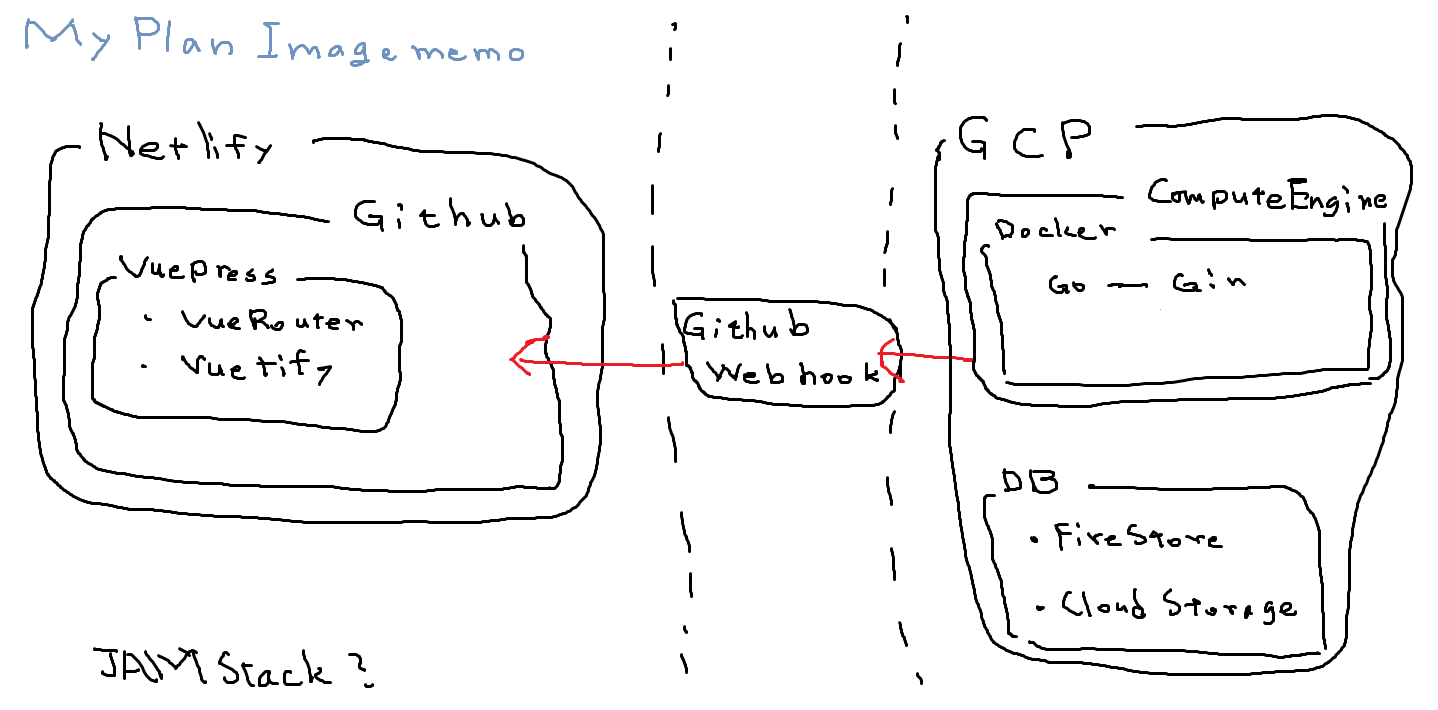 My Plan Image memo
Netlify
Github
VuePress
・ VueRouter
・ Vuetify
JAMStack?
Github
Webhook
GCP
ComputeEngine
Docker
Go — Gin
DB
・ FireStore
・ Cloud Storage